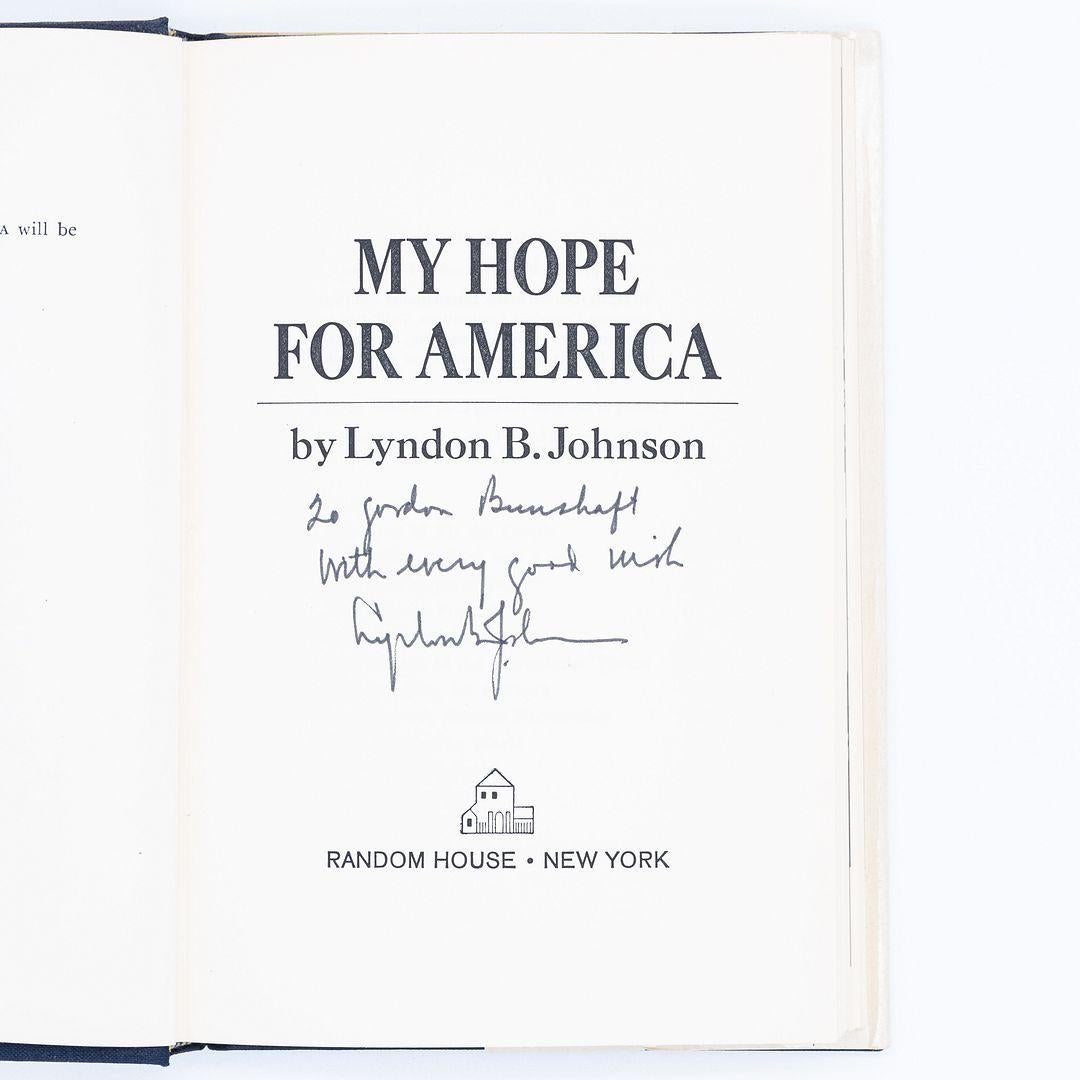 A will be
MY HOPE
FOR AMERICA
by Lyndon B. Johnson
To Gordon Bunshaft
With every good wish
Lyndon B Johnson
RANDOM HOUSE • NEW YORK